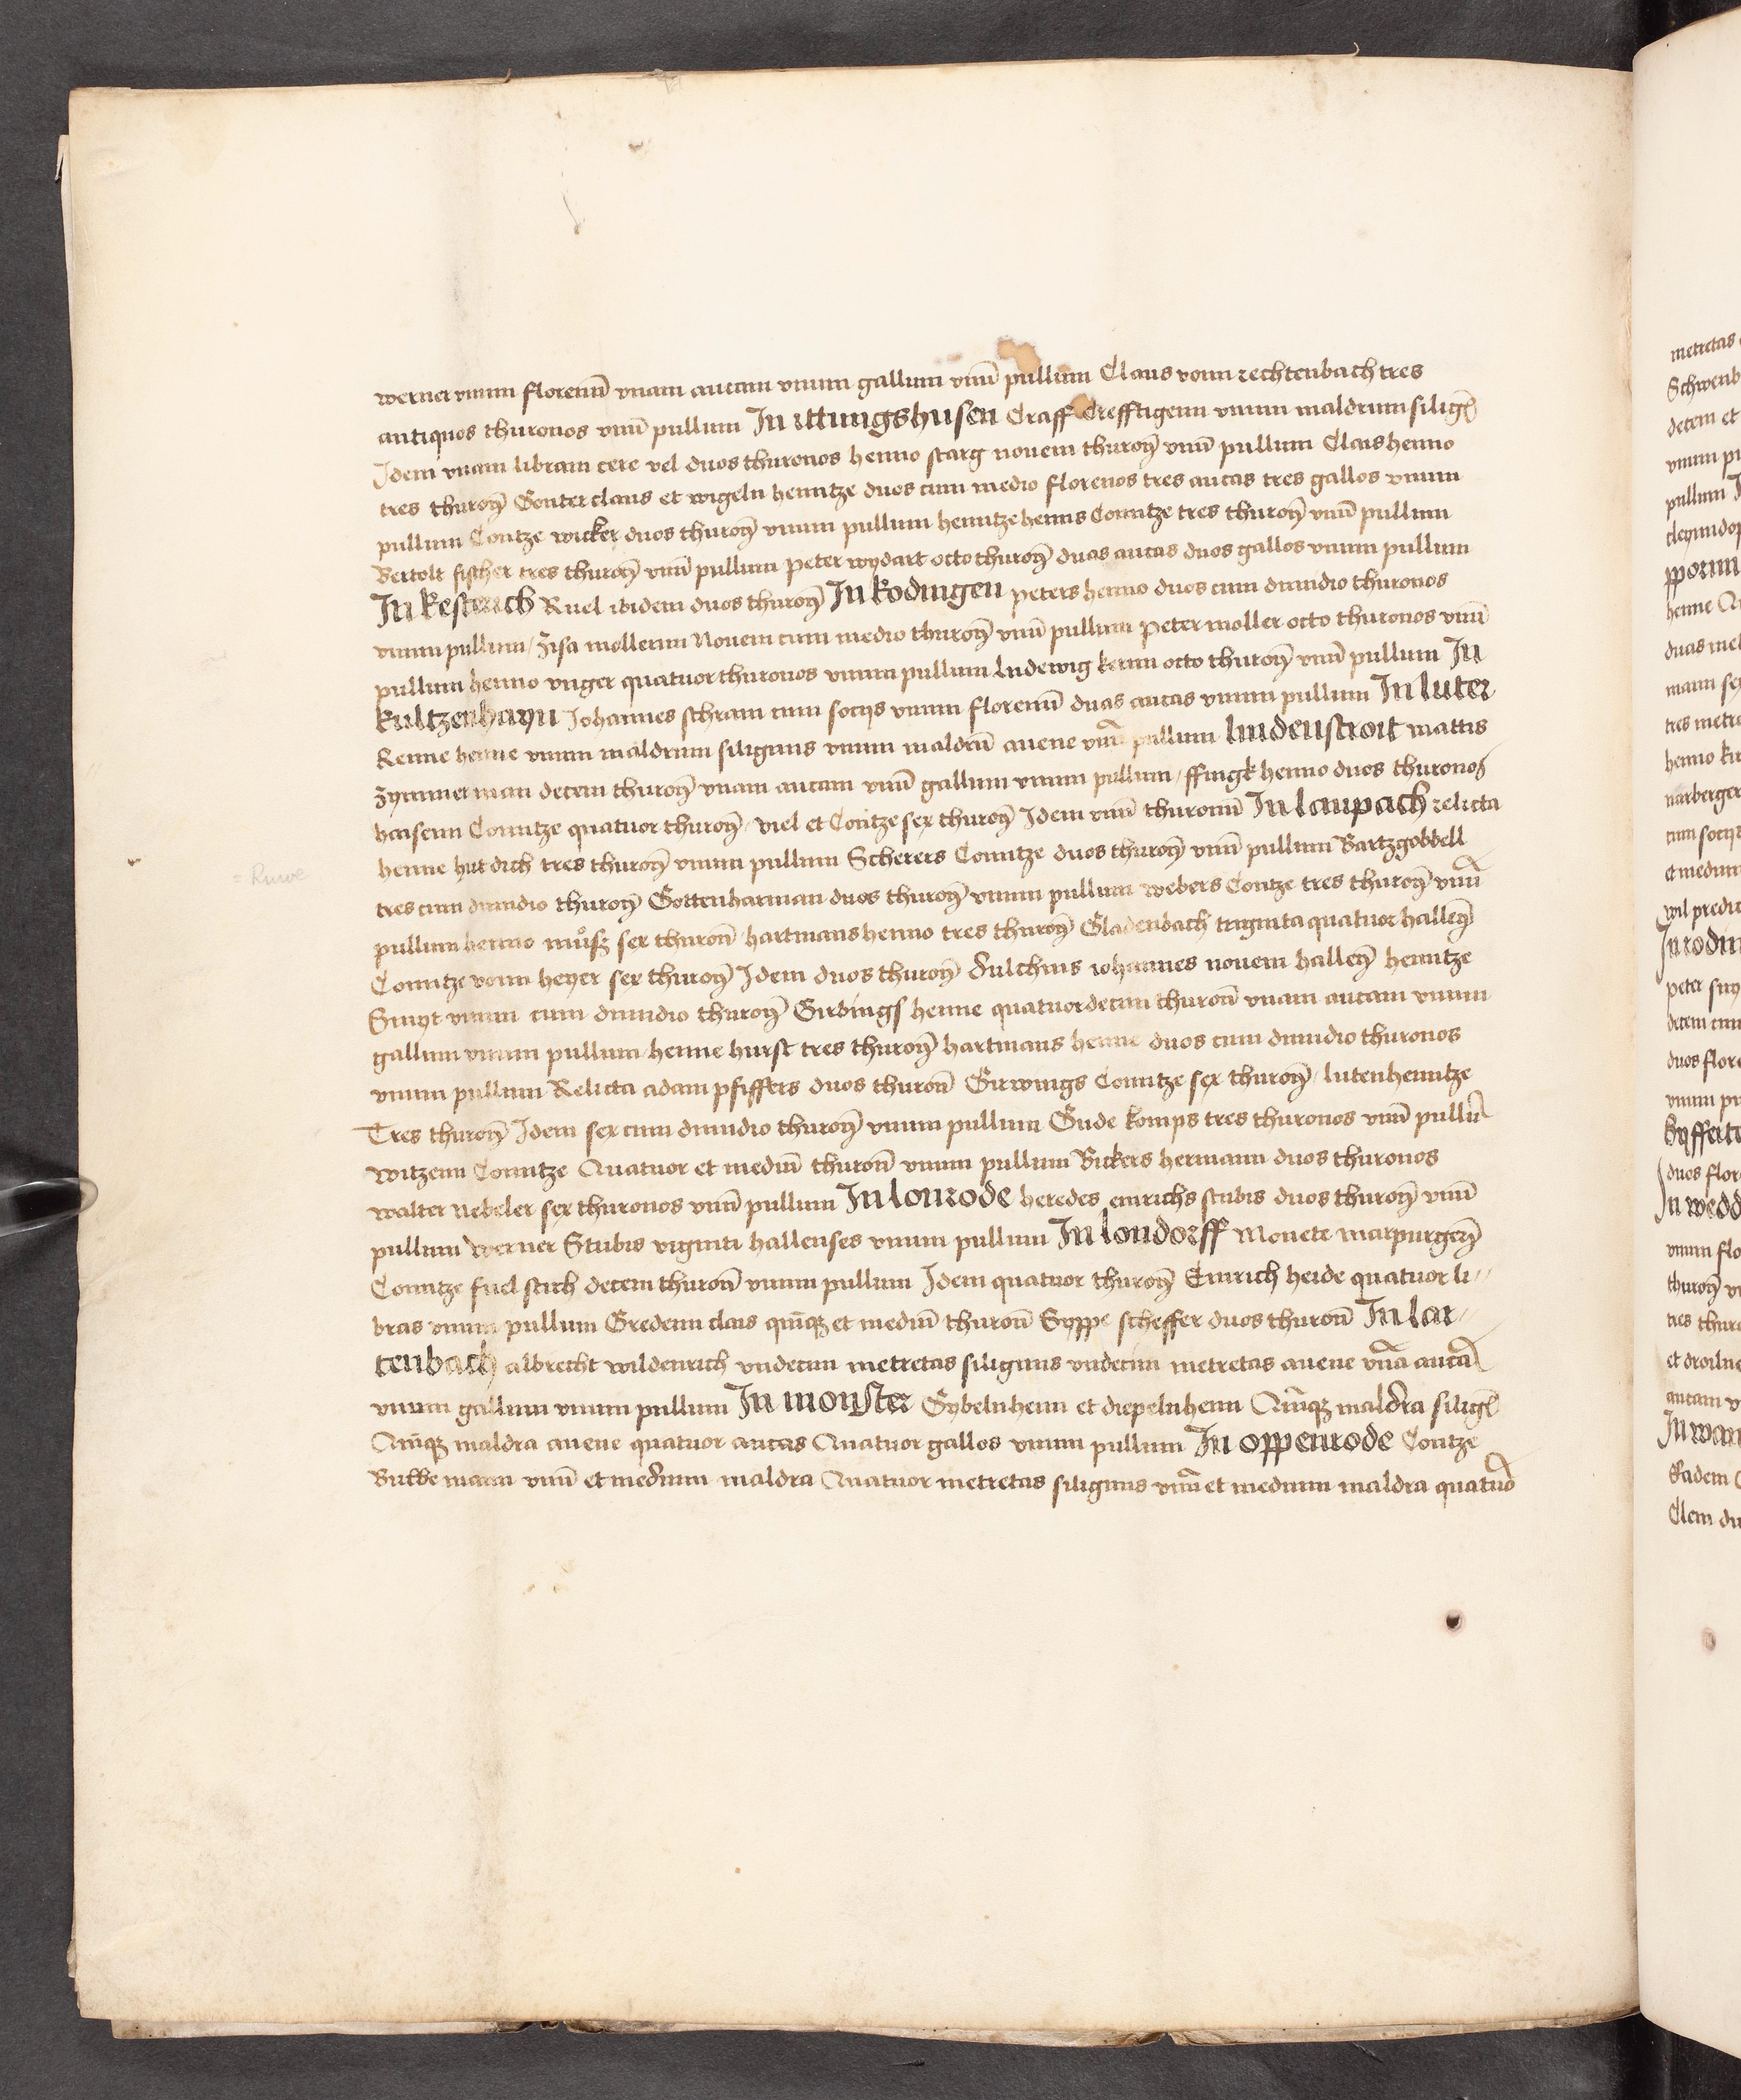 werner vnum florenū vnam aucam vnum gallum vnū pullum Claus vonn rechtenbach tres
antiquos thuronos vnū pullum In ittungshusen Craff Crefftigenn vnum maldrum silig̃
Idem vnam libram cere vel duos thuronos henno starg nouem thuroñ vnū pullum Clais henno
tres thuroñ Gonter claus et wigeln henntze duos cum medio florenos tres aucas tres gallos vnum
pullum Contze wicker duos thuroñ vnum pullum henntze henns Conntze tres thuroñ vnū pullum
Bertolt fischer tres thuroñ vnū pullum peter wydart octo thuroñ duas aucas duos gallos vnum pullum
In kesterich Ruel ibidem duos thuroñ In kodingen peters henno duos cum dimidio thuronos
vnum pullum / Zisa mollerinn Nouem cum medio thuroñ vnū pullum peter moller octo thuronos vnū
pullum henno vnger quatuor thuronos vnum pullum Ludewig kernn octo thuroñ vnū pullum In
kultzenhayn Johannes schram cum socijs vnum florenū duas aucas vnum pullum In luter
Kenne henne vnum maldrum siliginis vnum maldrū auene vnū pullum lindenstroit mattis
Zymmerman decem thuroñ vnam aucam vnū gallum vnum pullum / ffingk henno duos thuronos
hensenn Conntze quatuor thuroñ / viel et Contze sex thuroñ Idem vnū thuronū In laupach relicta
henne hut dich tres thuroñ vnum pullum Scherers Conntze duos thuroñ vnū pullum Bartzgobbell
tres cum dimidio thuroñ Gottenharman duos thuroñ vnum pullum webers Contze tres thuroñ vnū
pullum henno můsz sex thuroñ hartmans henno tres thuroñ Gladenbach triginta quatuor halleñ
Conntze vonn heyer sex thuroñ Idem duos thuroñ dulchins iohannes nouem halleñ henntze
Smyt vnum cum dimidio thuroñ Girbings henne quatuordecim thuroñ vnam aucam vnum
gallum vnum pullum / henne hurst tres thuroñ hartmans henne duos cum dimidio thuronos
vnum pullum Relicta adam pfiffers duos thuroñ Girwings Conntze sex thuroñ / lutenhenntze
Tres thuroñ Idem sex cum dimidio thuroñ vnum pullum Gude komps tres thuronos vnū pullū
witzenn Conntze Quatuor et mediū thuroñ vnum pullum Bickers hermann duos thuronos
walter nebeler sex thuronos vnū pullum In lonrode heredes emrichs stubis duos thuroñ vnū
pullum werner Stubis viginti hallenses vnum pullum In londorff Monete marpurgeñ
Conntze fuel stich decem thuroñ vnum pullum Idem quatuor thuroñ Emrich heide quatuor li-
bras vnum pullum Gredenn clais quīqz et mediū thuroñ Syppe scheffer duos thuroñ In lar-
tenbach albrecht wildenrich vndecim metretas siliginis vndecim metretas auene vnā aucā
vnum gallum vnum pullum In monster Gybelnhenn et diepelnhenn Quīqz maldra silig̃
Quīqz maldra auene quatuor aucas Quatuor gallos vnum pullum In oppenrode Contze
Buwemann vnū et medium maldra Quatuor metretas siliginis vnū et medium maldra quatuo
= Ruwe